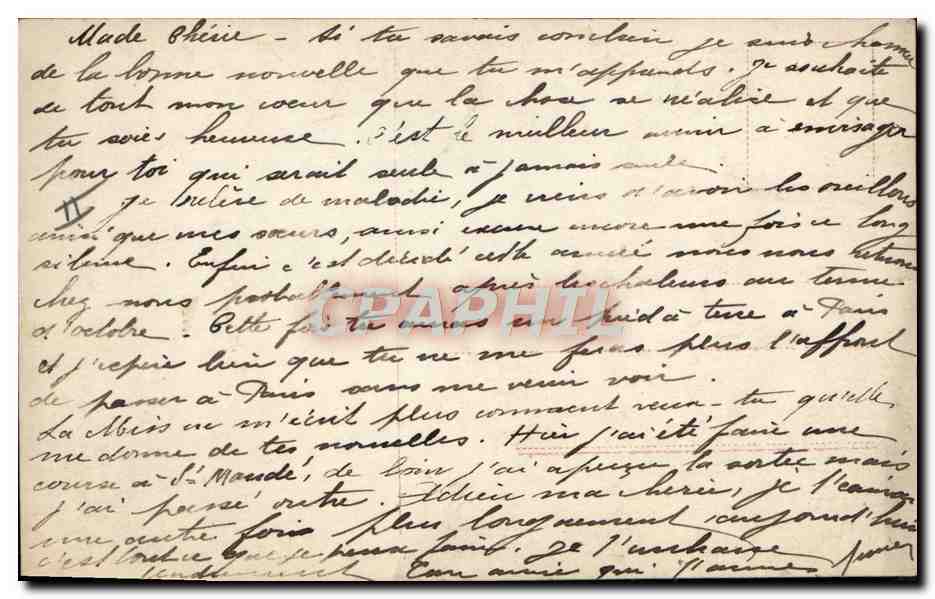 Made Chérie - Si tu savais combien je suis charmée
de la bonne nouvelle que tu m'apprends. Je souhaite
de tout mon coeur que la chose se réalise et que
tu sois heureuse. C'est le meilleur avenir à envisager
pour toi qui serait seule à jamais seule.
II
Je relève de maladie, je viens d'avoir les oreillons
ainsi que mes soeurs, aussi excuse encore une fois ce long
silence. Enfin c'est décidé cette année nous nous retrouvons
chez nous probablement après les chaleurs au terme
d'octobre - Cette fois tu auras un pied à terre à Paris
et j'espère bien que tu ne me feras plus l'affront
de passer à Paris sans me venir voir.
La Miss ne m'écrit plus comment veux-tu qu'elle
me donne de tes nouvelles. Hier j'ai été faire une
course à St Mandé, de loin j'ai aperçu la sortie mais
j'ai passé outre. Adieu ma chérie, je te
une autre fois plus longuement aujourd'hui
c'est tout ce que je peux faire. Je t'embrasse
tendrement Ton amie qui t'aime
CPAPHIL